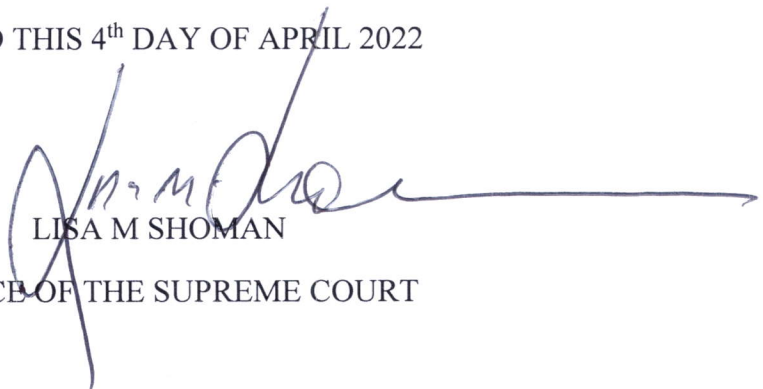 THIS 4th DAY OF APRIL 2022
LISA M SHOMAN
OF THE SUPREME COURT